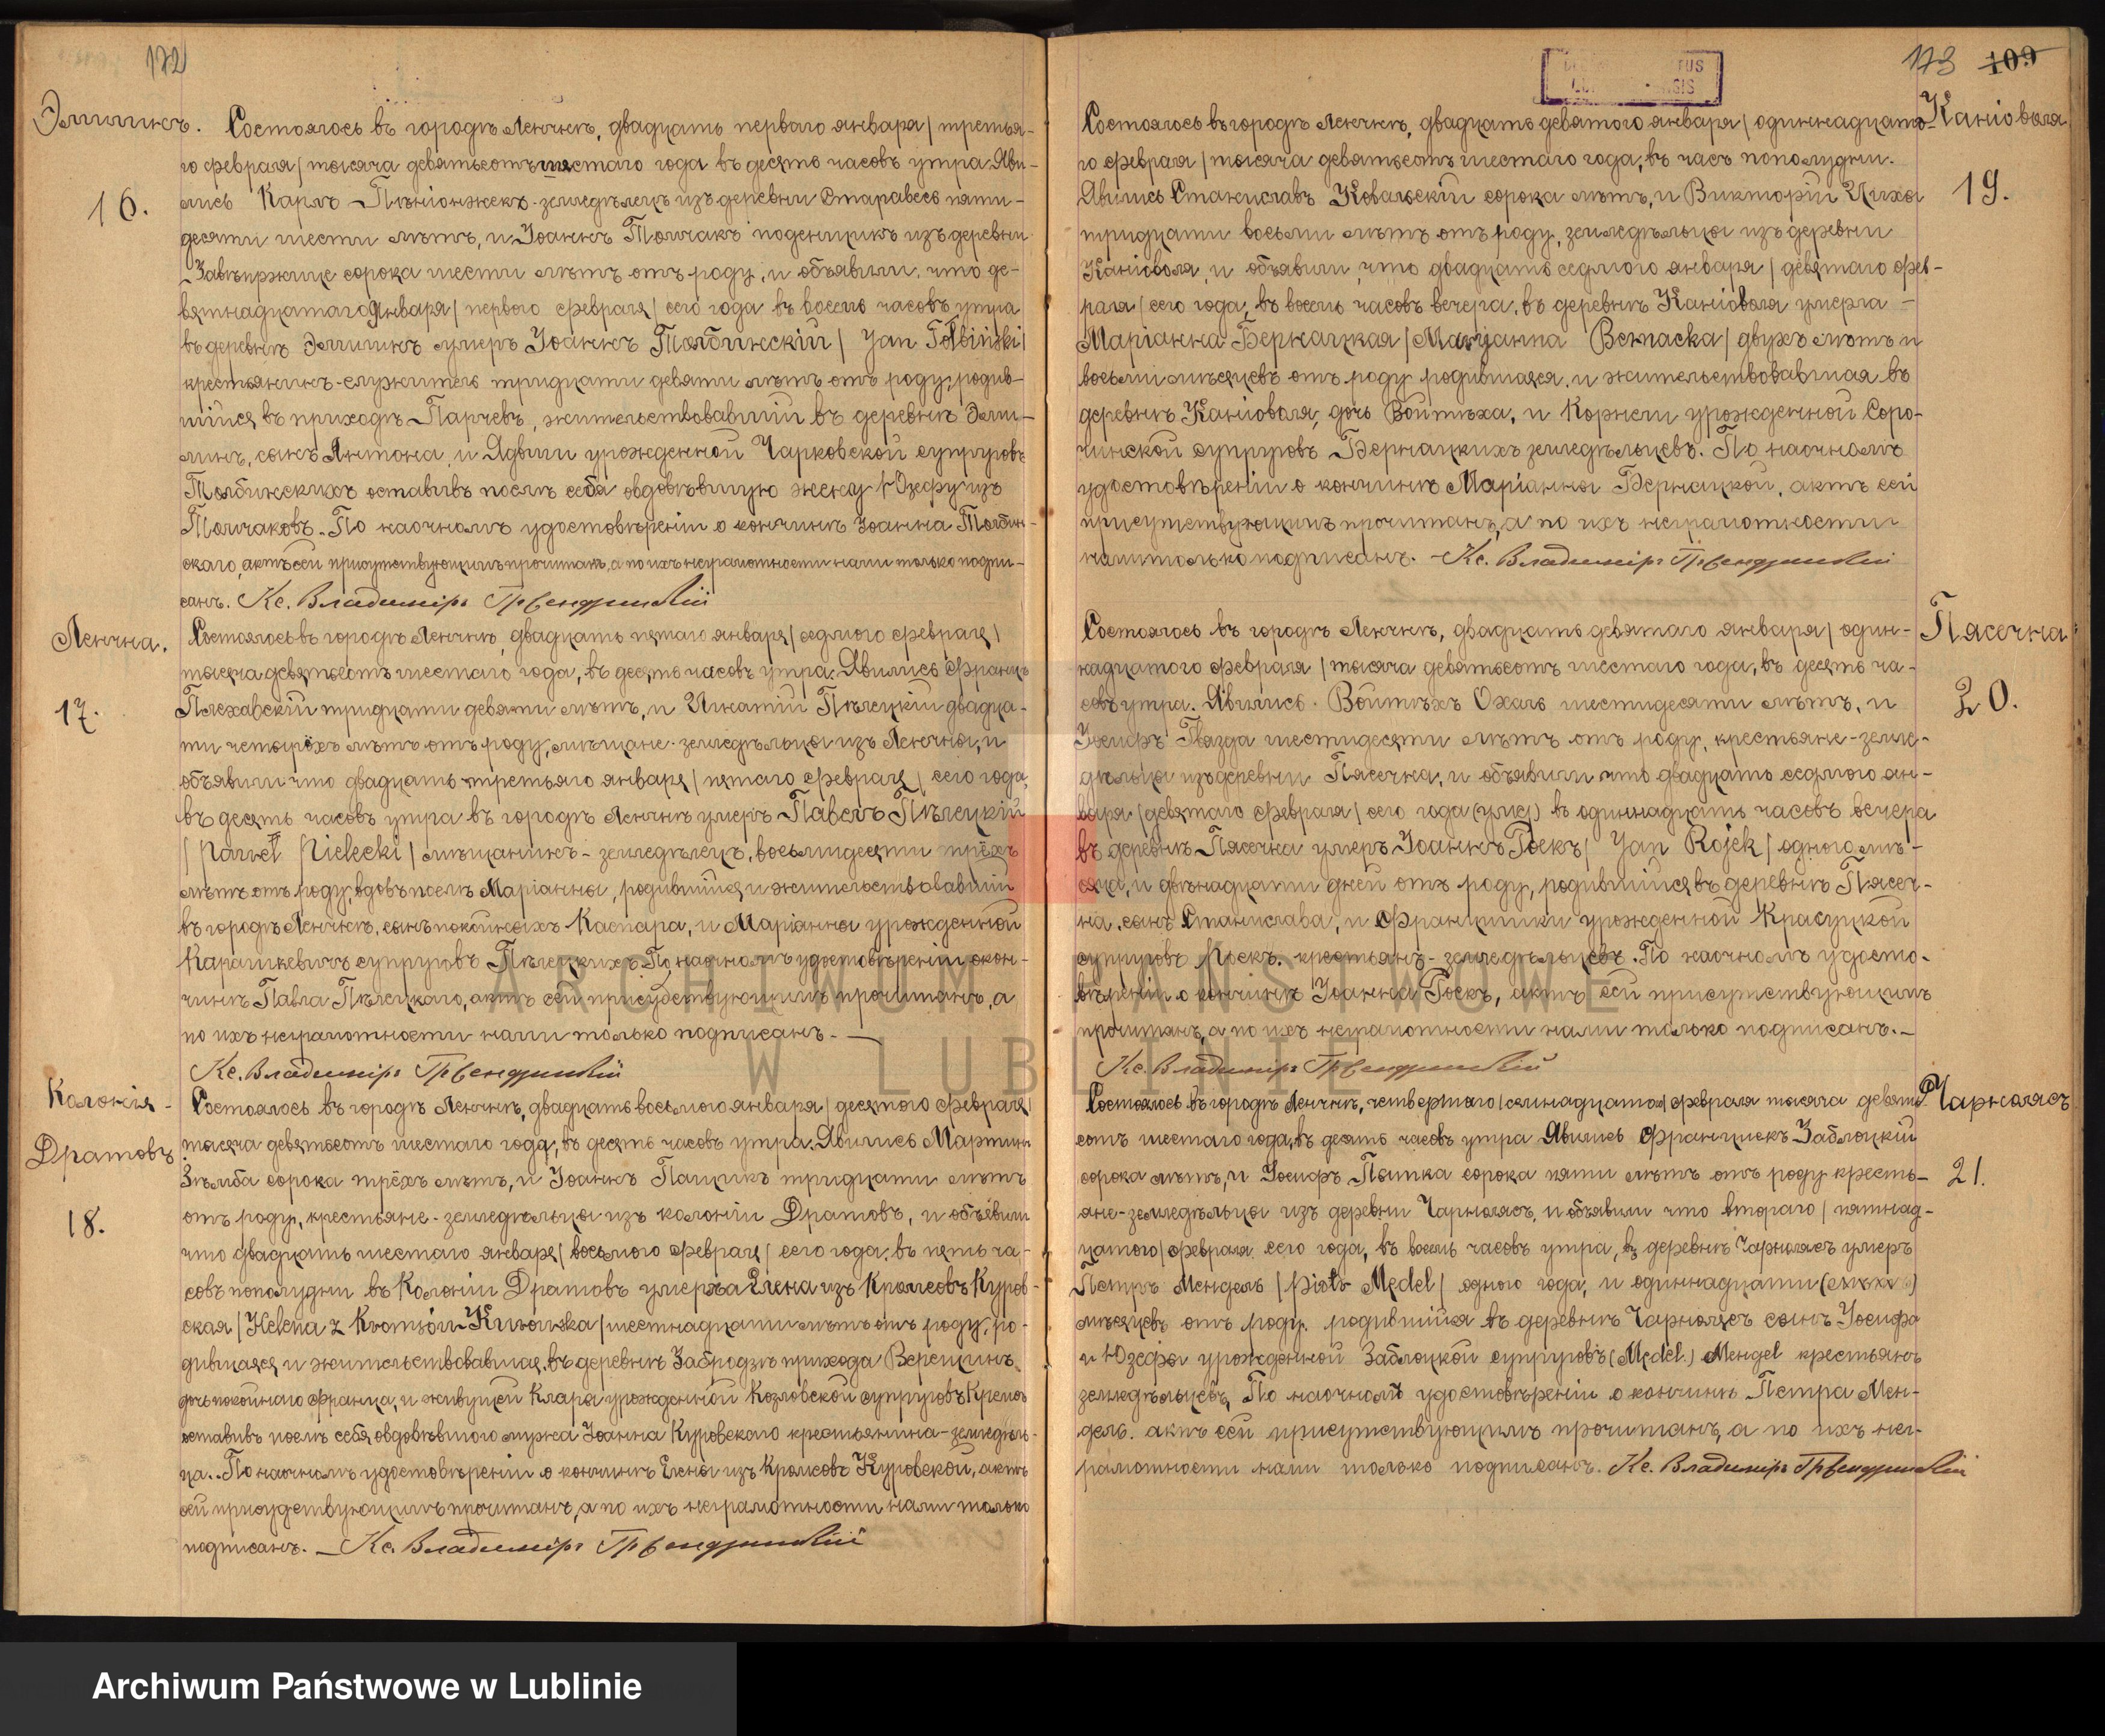 172
Эмилинъ.
16.
Состоялось въ городѣ Ленчнѣ, двадцать перваго января / третья-
го февраля / тысяча девятьсотъ шестаго года въ десять часовъ утра. Яви-
лись Карлъ Пѣніонжекъ земледѣлецъ изъ деревни Старавесь пяти-
десяти шести лѣтъ, и Іоаннъ Толчакъ поденщикъ изъ деревни
Завѣпржице сорока шести лѣтъ отъ роду, и объявили, что де-
вятнадцатаго Января / перваго февраля / сего года въ восемь часовъ утра
въ деревнѣ Эмилинъ умеръ Іоаннъ Толбинскій / Jan Tołbiński /
крестьянинъ-служитель тридцати девяти лѣтъ отъ роду, родив-
шійся въ приходѣ Парчевъ, жительствовавшій въ деревнѣ Эми-
линъ, сынъ Антона и Ядвиги урожденной Чарковской супруговъ
Толбинскихъ оставивъ послѣ себя овдовѣвшую жену Юзефу изъ
Толчаковъ. По наочномъ удостовѣреніи о кончинѣ Іоанна Толбин-
скаго, актъ сей присутствующимъ прочитанъ, а по ихъ неграмотности нами только подпи-
санъ. Кс. Владиміръ
Ленчна.
17.
Состоялось въ городѣ Ленчнѣ, двадцать пятаго января / седмого февраля /
тысяча девятьсотъ шестаго года, въ десять часовъ утра. Явились Францъ
Плехавскій тридцати девяти лѣтъ, и Игнатій Пѣлецкій двадца-
ти четырёхъ лѣтъ отъ роду, мѣщане-земледѣльцы изъ Ленчны, и
объявили что двадцать третьяго января / пятаго февраля / сего года,
въ десять часовъ утра въ городѣ Ленчнѣ умеръ Павелъ Пѣлецкій
/ Paweł Pielecki / мѣщанинъ-земледѣлецъ, восьмидесяти трёхъ
лѣтъ отъ роду, вдовъ послѣ Маріанны, родившійся и жительствовавшій
въ городѣ Ленчнѣ, сынъ покойныхъ Каспара, и Маріанны урожденной
Карашкевичъ супруговъ Пѣлецкихъ. По наочномъ удостовѣреніи о кон-
чинѣ Павла Пѣлецкаго, актъ сей присудствующимъ прочитанъ, а
по ихъ неграмотности нами только подписанъ. —
Кс. Владиміръ
Колонія-
Дратовъ
18.
Состоялось въ городѣ Ленчнѣ, двадцать восьмого января / десятого февраля /
тысяча девятьсотъ шестаго года, въ десять часовъ утра. Явились Мартинъ
Зѣмба сорока трёхъ лѣтъ, и Іоаннъ Пащикъ тридцати лѣтъ
отъ роду, крестьяне-земледѣльцы изъ колоніи Дратовъ, и объявили
что двадцать шестаго января / восьмого февраля / сего года, въ пять ча-
совъ пополудни въ Колоніи Дратовъ умерла Елена изъ Кромсовъ Куров-
ская / Helena z Kromsów Kurowska / шестнадцати лѣтъ отъ роду, ро-
дившаяся и жительствовавшая, въ деревнѣ Забродзѣ прихода Верещинъ,
дочь покойнаго Франца, и живущей Клара урожденной Козловской супруговъ Кромсъ
оставивъ послѣ себя овдовѣвшого мужа Іоанна Куровского крестьянина-земледѣль-
ца. По наочномъ удостовѣреніи о кончинѣ Елены изъ Кромсовъ Куровской, актъ
сей присудствующимъ прочитанъ, а по ихъ неграмотности нами только
подписанъ. — Кс. Владиміръ
173 109
Каніоволя
19.
Состоялось въ городѣ Ленчнѣ, двадцать девятого января / одиннадцато-
го февраля / тысяча девятьсотъ шестаго года, въ часъ пополудни.
Явились Станиславъ Ковальскій сорока лѣтъ, и Викторій
тридцати восьми лѣтъ отъ роду, земледѣльцы изъ деревни
Каніоволя, и объявили, что двадцать седмого января / девятаго фев-
раля / сего года, въ восемь часовъ вечера, въ деревнѣ Каніоволя умерла —
Маріанна Бернацкая / Maryanna Bernacka / двухъ лѣтъ и
восьми мѣсяцевъ отъ роду родившаяся и жительствовавшая въ
деревнѣ Каніоволя, дочь Войтѣха, и Корнели урожденной Соро-
чинской супруговъ Бернацкихъ земледѣльцевъ. По наочномъ
удостовѣреніи о кончинѣ Маріанны Бернацкой, актъ сей
присутствующимъ прочитанъ, а по ихъ неграмотности
нами только подписанъ. — Кс. Владиміръ
Пясечна
20.
Состоялось въ городѣ Ленчнѣ, двадцать девятаго января / один-
надцатого февраля / тысяча девятьсотъ шестаго года, въ десять ча-
совъ утра. Явились Войтѣхъ Охаль шестидесяти лѣтъ, и
Іосифъ Газда шестидесяти лѣтъ отъ роду, крестьяне-земле-
дѣльцы изъ деревни Пясечна, и объявили что двадцать седмого ян-
варя / девятаго февраля / сего года (умер) въ одиннадцать часовъ вечера
въ деревнѣ Пясечна умеръ Іоаннъ Роекъ / Jan Rojek / одного мѣ-
сяца, и двѣнадцати дней отъ роду, родившійся въ деревнѣ Пясеч-
на, сынъ Станислава, и Францишки урожденной Красуцкой
супруговъ Роекъ, крестьянъ-земледѣльцевъ. По наочномъ удосто-
вѣреніи о кончинѣ Іоанна Роекъ, актъ сей присутствующимъ
прочитанъ, а по ихъ неграмотности нами только подписанъ. —
Кс. Владиміръ
Чарнолясъ
21.
Состоялось въ городѣ Ленчнѣ, четвертаго / семнадцатого / февраля тысяча девять-
сотъ шестаго года, въ десять часовъ утра Явились Францискъ Заблоцкій
сорока лѣтъ, и Іосифъ сорока пяти лѣтъ отъ роду кресть-
яне-земледѣльцы изъ деревни Чарнолясъ, и объявили что второго / пятнад-
цатого / февраля сего года, въ восемь часовъ утра, въ деревнѣ Чарнолясъ умеръ
Петръ Мендель / Piotr Mędel / одного года, и одиннадцати
мѣсяцевъ отъ роду, родившійся въ деревнѣ Чарнолясъ сынъ Іосифа
и Юзефы урожденной Заблоцкой супруговъ (Mędel.) Мендel крестьянъ
земледѣльцевъ, По наочномъ удостовѣреніи о кончинѣ Петра Мен-
дель. актъ сей присутствующимъ прочитанъ, а по ихъ нег-
рамотности нами только подписанъ. Кс. Владиміръ
ARCHIWUM PAŃSTWOWE
W LUBLINIE
Archiwum Państwowe w Lublinie